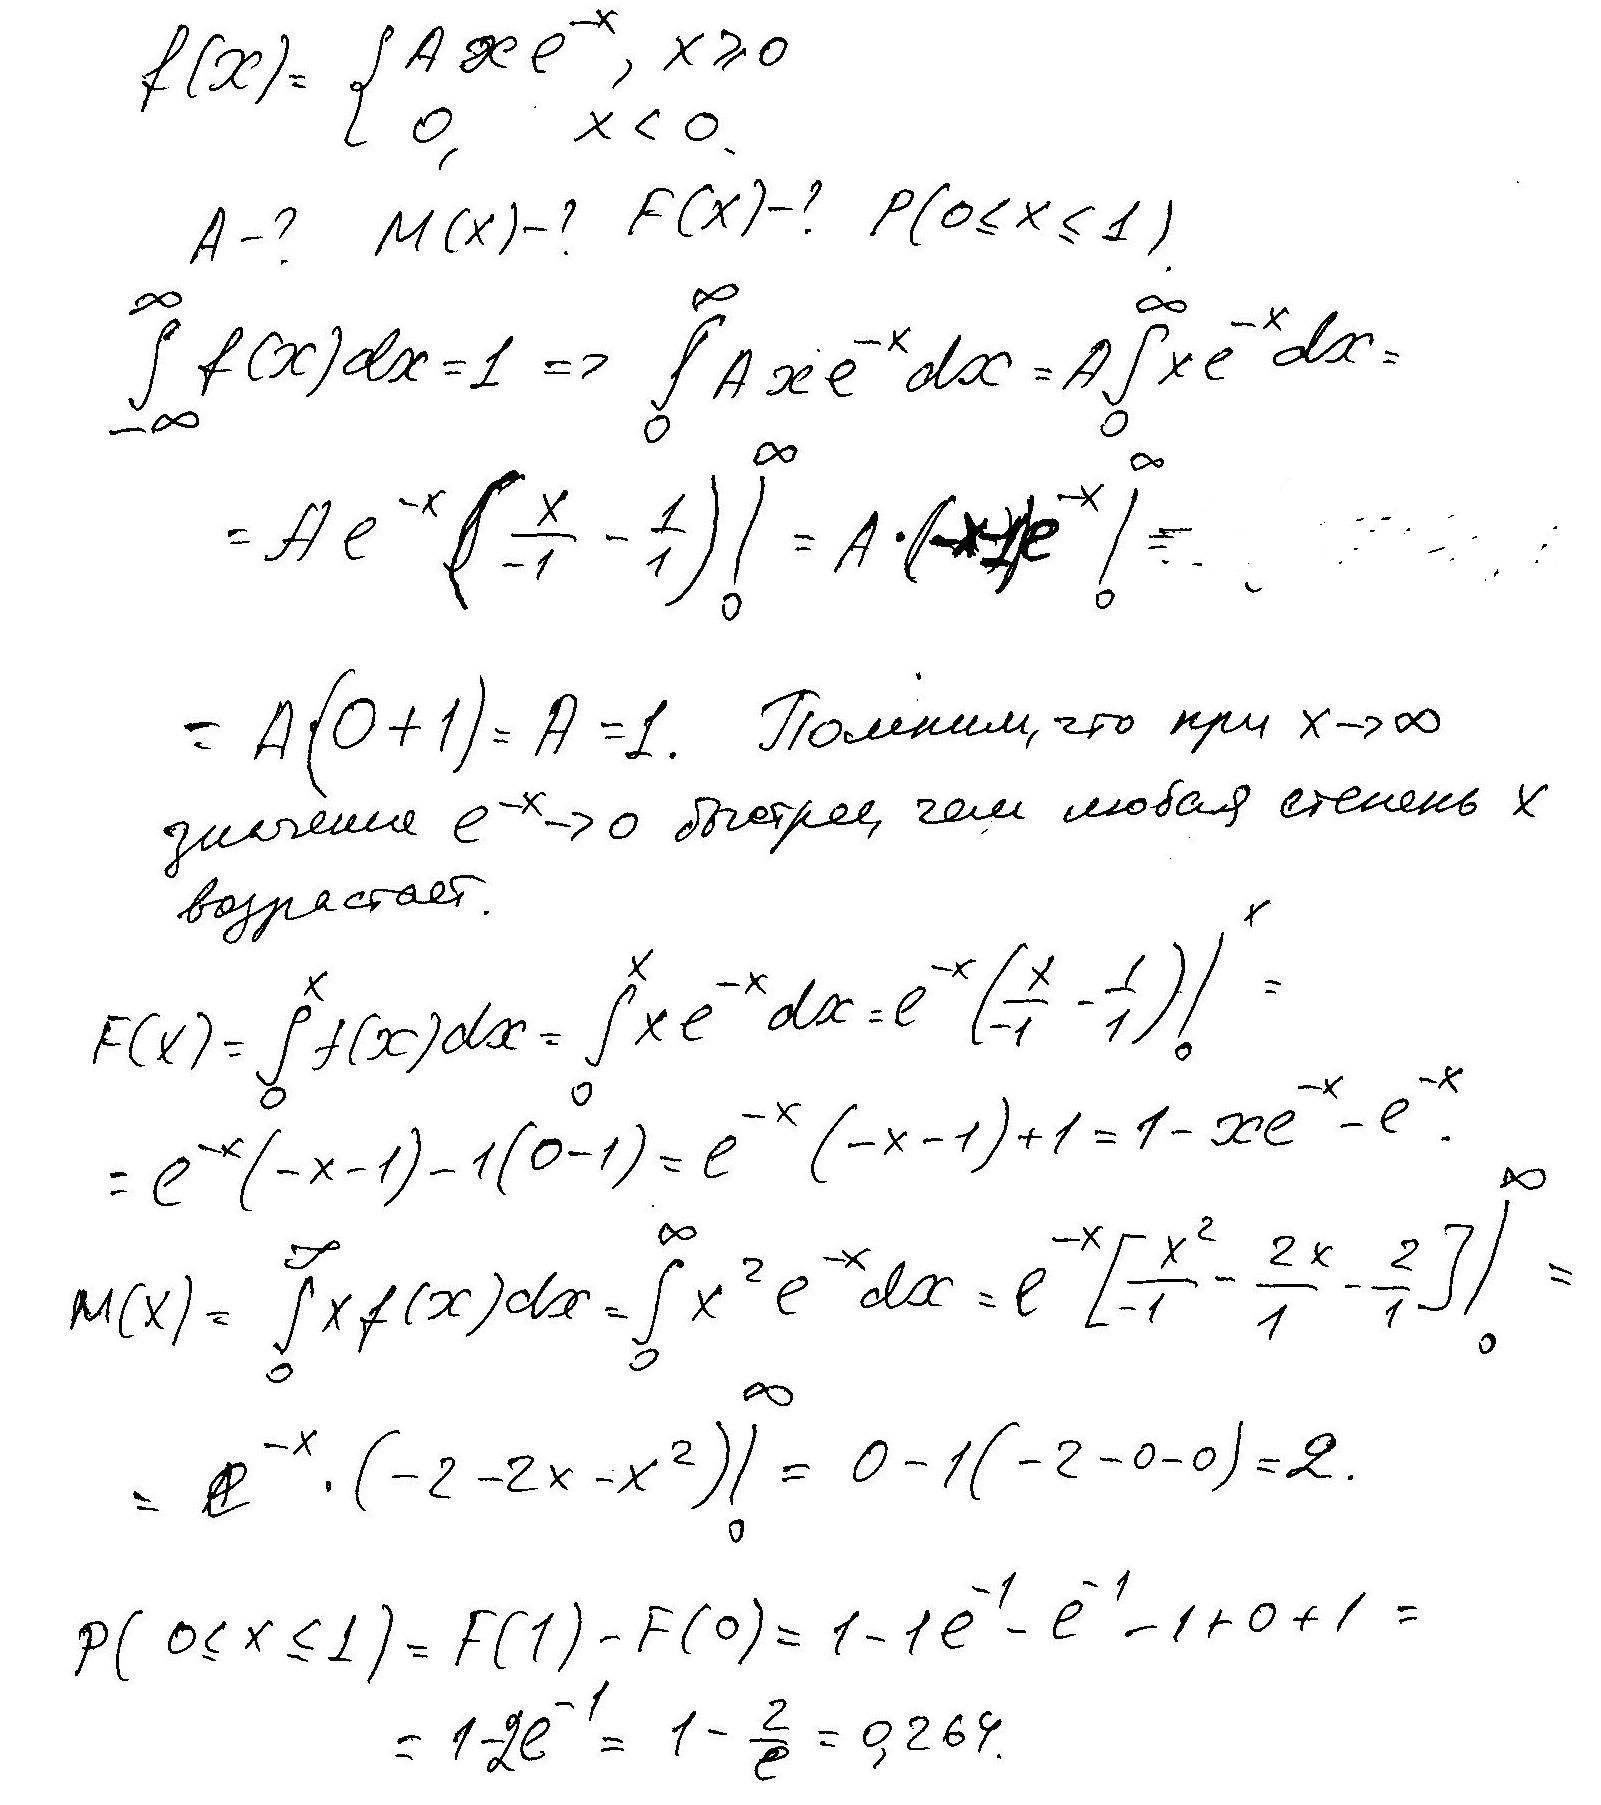 f(x) = { A x e^{-x}, x ⩾ 0
0, x < 0.
A-? M(x)-? F(x)-? P(0 ≤ x ≤ 1).
∫_{-∞}^{∞} f(x)dx = 1 => ∫_0^∞ A x e^{-x} dx = A ∫_0^∞ x e^{-x} dx =
= A e^{-x} (x/-1 - 1/1) |_0^∞ = A · (-x-1)e^{-x} |_0^∞ =
= A(0+1) = A = 1. Помним, что при x → ∞
значение e^{-x} → 0 быстрее, чем любая степень x
возрастает.
F(x) = ∫_0^x f(x)dx = ∫_0^x x e^{-x} dx = e^{-x} (x/-1 - 1/1) |_0^x =
= e^{-x}(-x-1) - 1(0-1) = e^{-x}(-x-1)+1 = 1 - xe^{-x} - e^{-x}.
M(x) = ∫_0^∞ x f(x)dx = ∫_0^∞ x^2 e^{-x} dx = e^{-x} [x^2/-1 - 2x/1 - 2/1] |_0^∞ =
= e^{-x} · (-2-2x-x^2) |_0^∞ = 0 - 1(-2-0-0) = 2.
P(0 ≤ x ≤ 1) = F(1) - F(0) = 1 - 1e^{-1} - e^{-1} - 1 + 0 + 1 =
= 1-2e^{-1} = 1 - 2/e = 0,264.